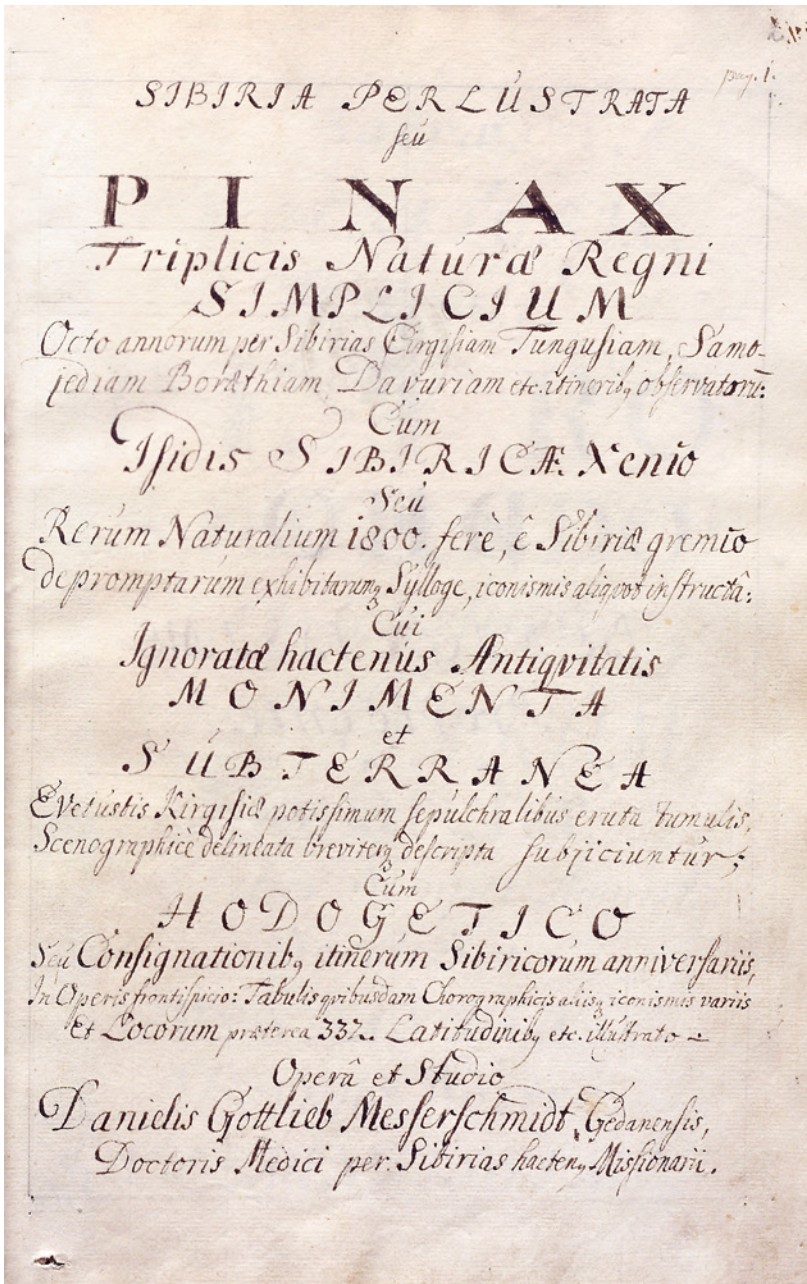 pag. 1.
SIBIRIA PERLUSTRATA
seu
PINAX
Triplicis Naturæ Regni
SIMPLICIUM
Octo annorum per Sibirias Cirgisiam Tungusiam, Samo-
jediam Boræthiam, Davuriam etc. itineribꝫ observatorū:
Cum
Isidis SIBIRICÆ Xenio
Seu
Rerum Naturalium 1800. ferè, ê Sibiriæ gremio
depromptarum exhibitarumqꝫ Sylloge, iconismis aliqvot instructâ:
Cui
Ignoratæ hactenus Antiqvitatis
MONIMENTA
et
SUBTERRANEA
E Vetustis Kirgisiæ potissimum sepulchralibus eruta tumulis,
Scenographicè delineata breviterqꝫ descripta subjiciuntur;
Cum
HODOGETICO
Seu Consignationibꝫ itinerum Sibiricorum anniversariis,
In Operis frontispicio: Tabulis qvibusdam Chorographicis aliisqꝫ iconismis variis
Et Locorum præterea 337. Latitudinibꝫ etc. illustrato
Operâ et Studio
Danielis Gottlieb Messerschmidt, Gedanensis,
Doctoris Medici per Sibirias hactenꝫ Missionarii.